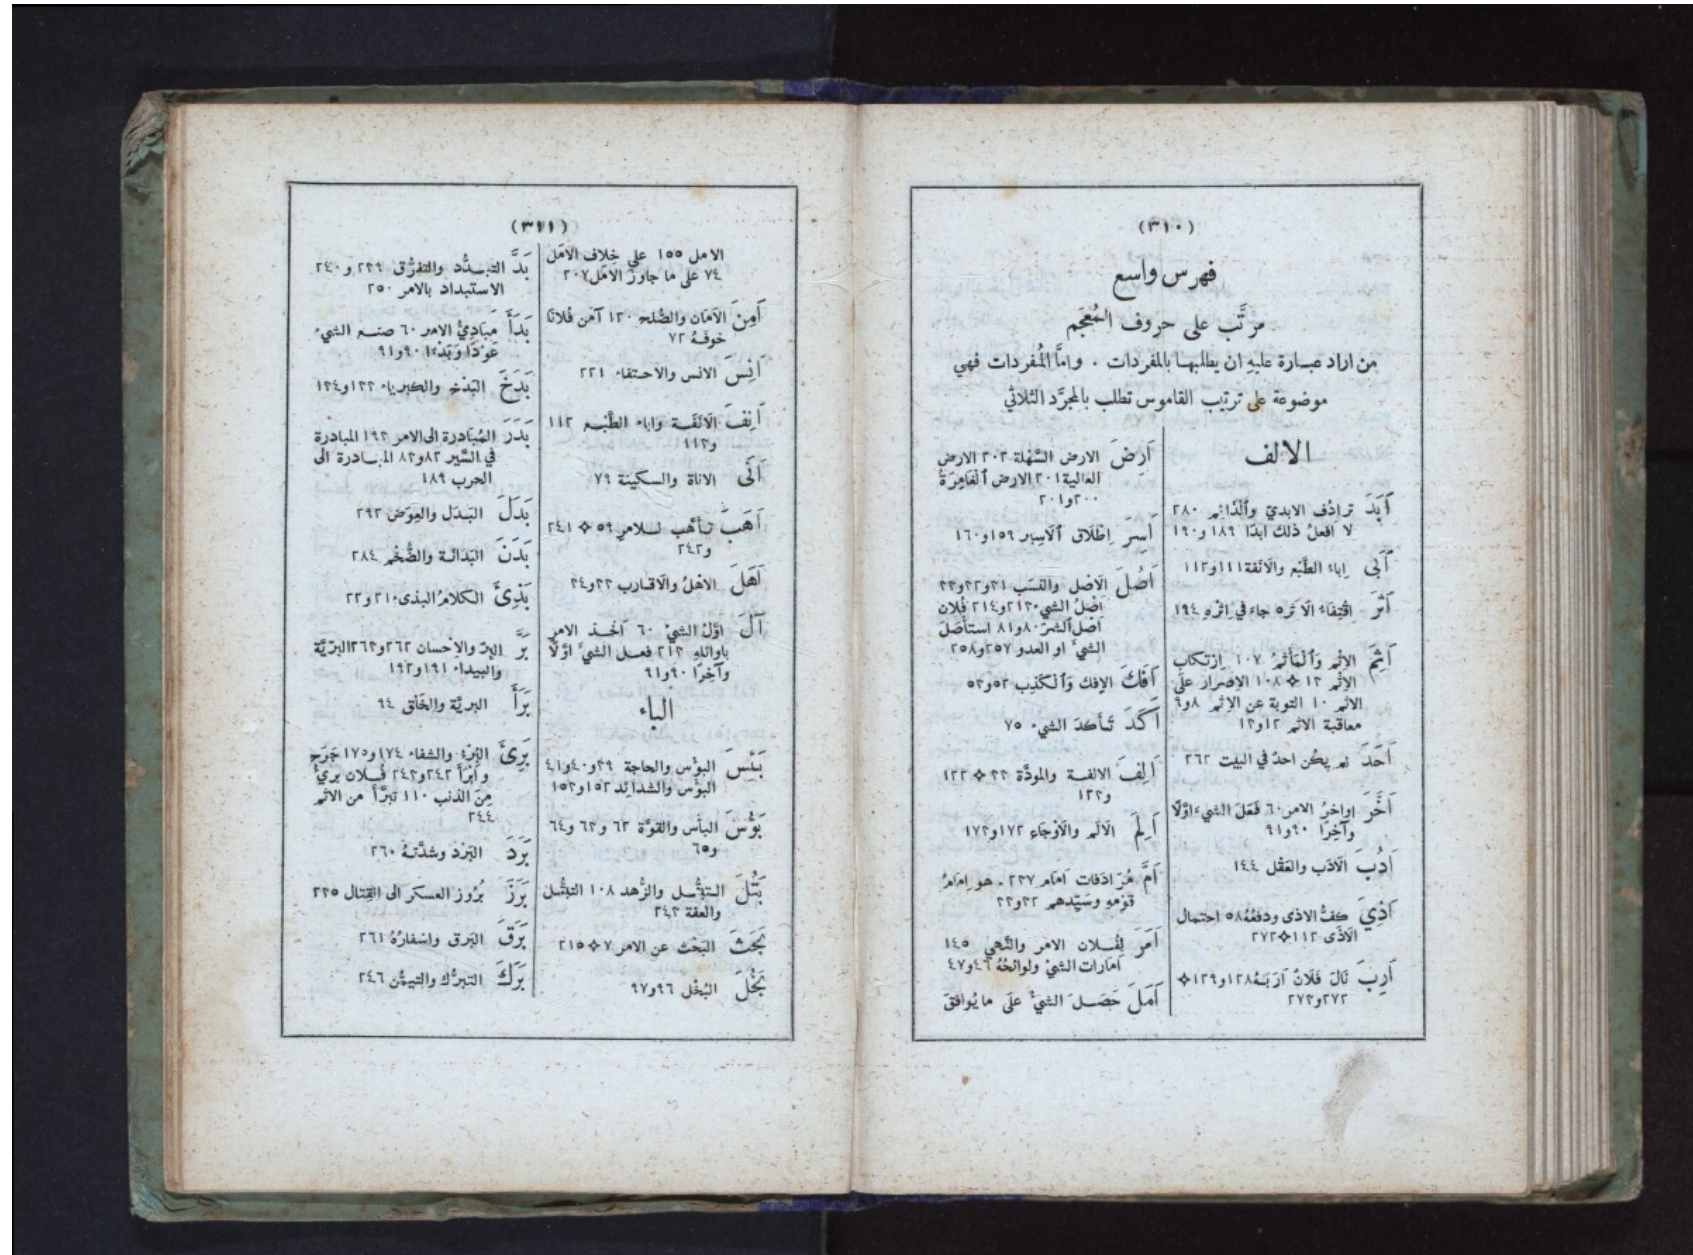 (٣١٠)
فهرس واسع
مرتَّب على حروف المُعْجَم
من اراد عبارة عليهِ ان يطلبها بالمفردات . وامَّا المُفردات فهي
موضوعة على ترتيب القاموس تطلب بالمجرَّد الثلاثي
الالف
أَبَدَ ترادُف الابديّ وٱلْدَّائِم ٢٨٠
لا افعلُ ذلك ابدًا ١٨٩ و١٩٠
أَبَى اِباء الطَّبْع والأنَفة ١١١و١١٢
أَثَرَ اقتِفاء الأَثَره جاء في اِثْرِه ١٩٤
أَثِمَ الاِثْم وَٱلْمَأْثَمُ ١٠٧ اِرْتكاب
الاِثْم ١٢ ✧ ١٠٨ الاِصْرار على
الاثم ١٠ التوبة عن الاثم ٨و٩
معاقبة الاثم ١٢و١٣
أَحَدَ لم يكُن احدٌ في البيت ٢٦٢
أَخَّرَ اواخرُ الامر ٦٠ فَعَلَ الشيء اوَّلًا
وآخِرًا ٩٠و٩١
أَدُبَ الأَدَب والعَقْل ١٤٤
أَذِيَ كفُّ الاذى ودفعُهُ ٥٨ احتمال
الأَذَى ١١٢✧٢٧٢
أَرِبَ نَالَ فُلَانٌ أَرَبَهُ ١٢٨و١٢٩✧
٢٧٢و٢٧٣
أَرَضَ الارض السَّهْلة ٢٠٢ الارض
العالية ٢٠١ الارض ٱلْغَامِرَةُ
٢٠٠و٢٠١
أَسَرَ اِطْلَاق ٱلْأَسِير ١٥٩و١٦٠
أَصُلَ الأَصْل والنسَب ٢١و٢٢و٢٣
اصْلُ الشيء ٢١٣و٢١٤ فُلان
اصل الشرّ ٨٠و٨١ استأصَلَ
الشيء او العدو ٢٥٧و٢٥٨
أَفَكَ الافك وَٱلْكَذِب ٥٢و٥٣
أَكَّدَ تَأَكَّدَ الشيء ٧٥
أَلِفَ الالفة والمودَّة ٢٣ ✧ ١٢٢
و١٢٣
أَلِمَ الأَلَم والأَوْجَاع ١٧٢و١٧٣
أَمَّ مُرَادفات امَام ٢٣٧ . هو اِمَامُ
قوْمهِ وسَيّدهم ٢٢و٢٣
أَمَرَ لِفُلان الامر والنَّهي ١٤٥
امارات الشيْ ولوائحُهُ ٤٦و٤٧
أَمَلَ حَصَلَ الشيْ علَى ما يُوافق
(٣١١)
الامل ١٥٥ على خِلاف الامَل
٧٤ على ما جاوز الامَل ٢٠٧
أَمِنَ الأَمَان والصُّلح ١٣٠ آمَنَ فُلانًا
خوفَهُ ٧٢
أَنِسَ الانس والاحتفاء ٢٢١
أَنِفَ الأَنَفَة واباء الطَّبْع ١١٢
و١١٣
أَنَى الاناة والسكينة ٧٩
أَهَبَ تأهَّب للامر ٥٩ ✧ ٢٤١
و٢٤٢
أَهَلَ الاهْلُ والاقارب ٢٣و٢٤
آلَ اوَّلُ الشيْ ٦٠ أخذ الامر
باوائلهِ ٢١٣ فعل الشيْ اوَّلًا
وآخِرًا ٩٠و٩١
الباء
بَئِسَ البؤس والحاجة ٣٩و٤٠و٤١
البؤس والشدائد ١٥٢و١٥٣
بَؤُسَ البأس والقوَّة ٦٢ و٦٣ و٦٤
و٦٥
بَتُلَ التبتُّل والزُّهد ١٠٨ التبتُّل
والعفة ٢٤٣
بَحَثَ البَحْث عن الامر ٧✧٢١٥
بَخُلَ البُخْل ٩٦و٩٧
بَدَّ التبدُّد والتفرُّق ٢٣٩ و٢٤٠
الاستبداد بالامر ٢٥٠
بَدَأَ مَبادِئُ الامر ٦٠ صنع الشيء
عَوْدًا وَبَدْءًا ٩٠و٩١
بَذَخَ البَذْخ والكبرياء ١٢٣و١٢٤
بَدَرَ المُبَادرة الى الامر ١٩٣ المبادرة
في السَّير ٨٢و٨٣ المبادرة الى
الحرب ١٨٩
بَدَلَ البَدَل والعِوَض ٢٩٣
بَدَنَ البَدَانة والضُّخْم ٢٨٤
بَذِئَ الكلامُ البذيء ٢١و٢٢
بَرَّ البِرّ والاحْسان ٢٦٢و٢٦٣ البرّيَّة
والبيداء ١٩١و١٩٢
بَرَأَ البريَّة والخَلْق ٩٤
بَرِئَ البُرْء والشفاء ١٧٤و١٧٥ جَرَح
وابْرَأَ ٢٤٢و٢٤٣ فُلان بريْ
مِنَ الذنب ١١٠ تبرَّأَ من الاثم
٢٤٤
بَرَدَ البَرْد وشدَّتهُ ٢٦٠
بَرَزَ بُرُوز العسكر الى القِتال ٢٢٥
بَرَقَ البَرق واسْفارُهُ ٢٦١
بَرَكَ التبرُّك والتيمُّن ٢٤٦